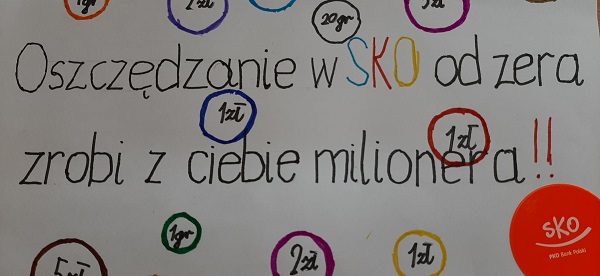 1gr 2zł 20gr 5zł
Oszczędzanie w SKO od zera
1zł 1zł
zrobi z ciebie milionera!!
1gr SKO
PKO Bank Polski
5zł 2zł 1zł